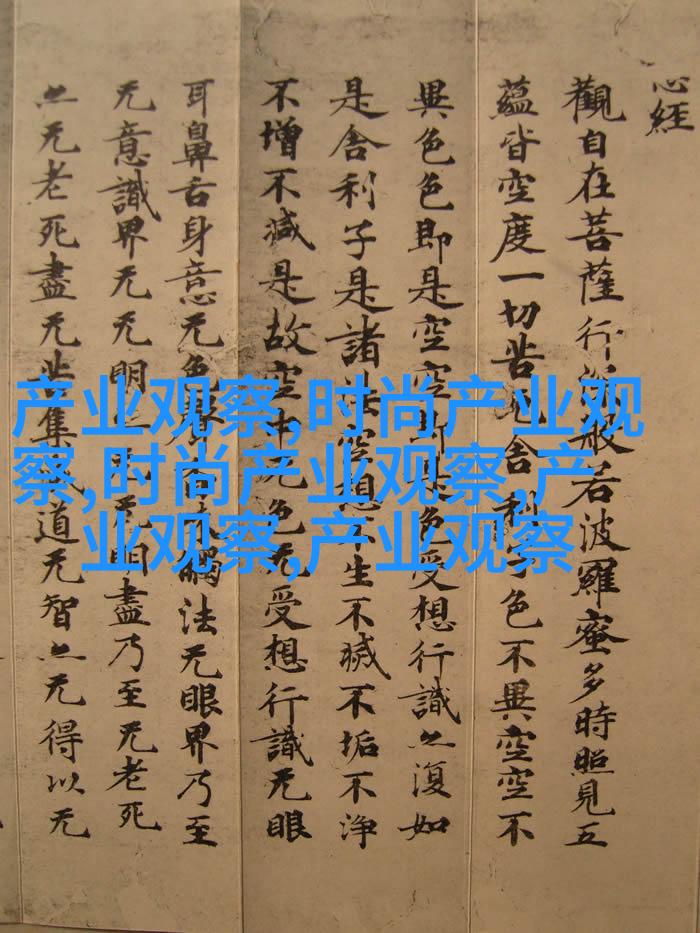 心經
觀自在菩薩行般若波羅蜜多時照見五
蘊皆空度一切苦厄舍利子色不異空空不
異色色即是空空即是色受想行識亦復如
是舍利子是諸法空想不生不滅不垢不淨
不增不減是故空中无色无受想行識无眼
耳鼻舌身意无色聲味觸法无眼界乃至
无意識界无无明亦无无明盡乃至无老死
亦无老死盡无苦集道无智亦无得以无
产业观察,时尚产业观
察,时尚产业观察,产
业观察,产业观察